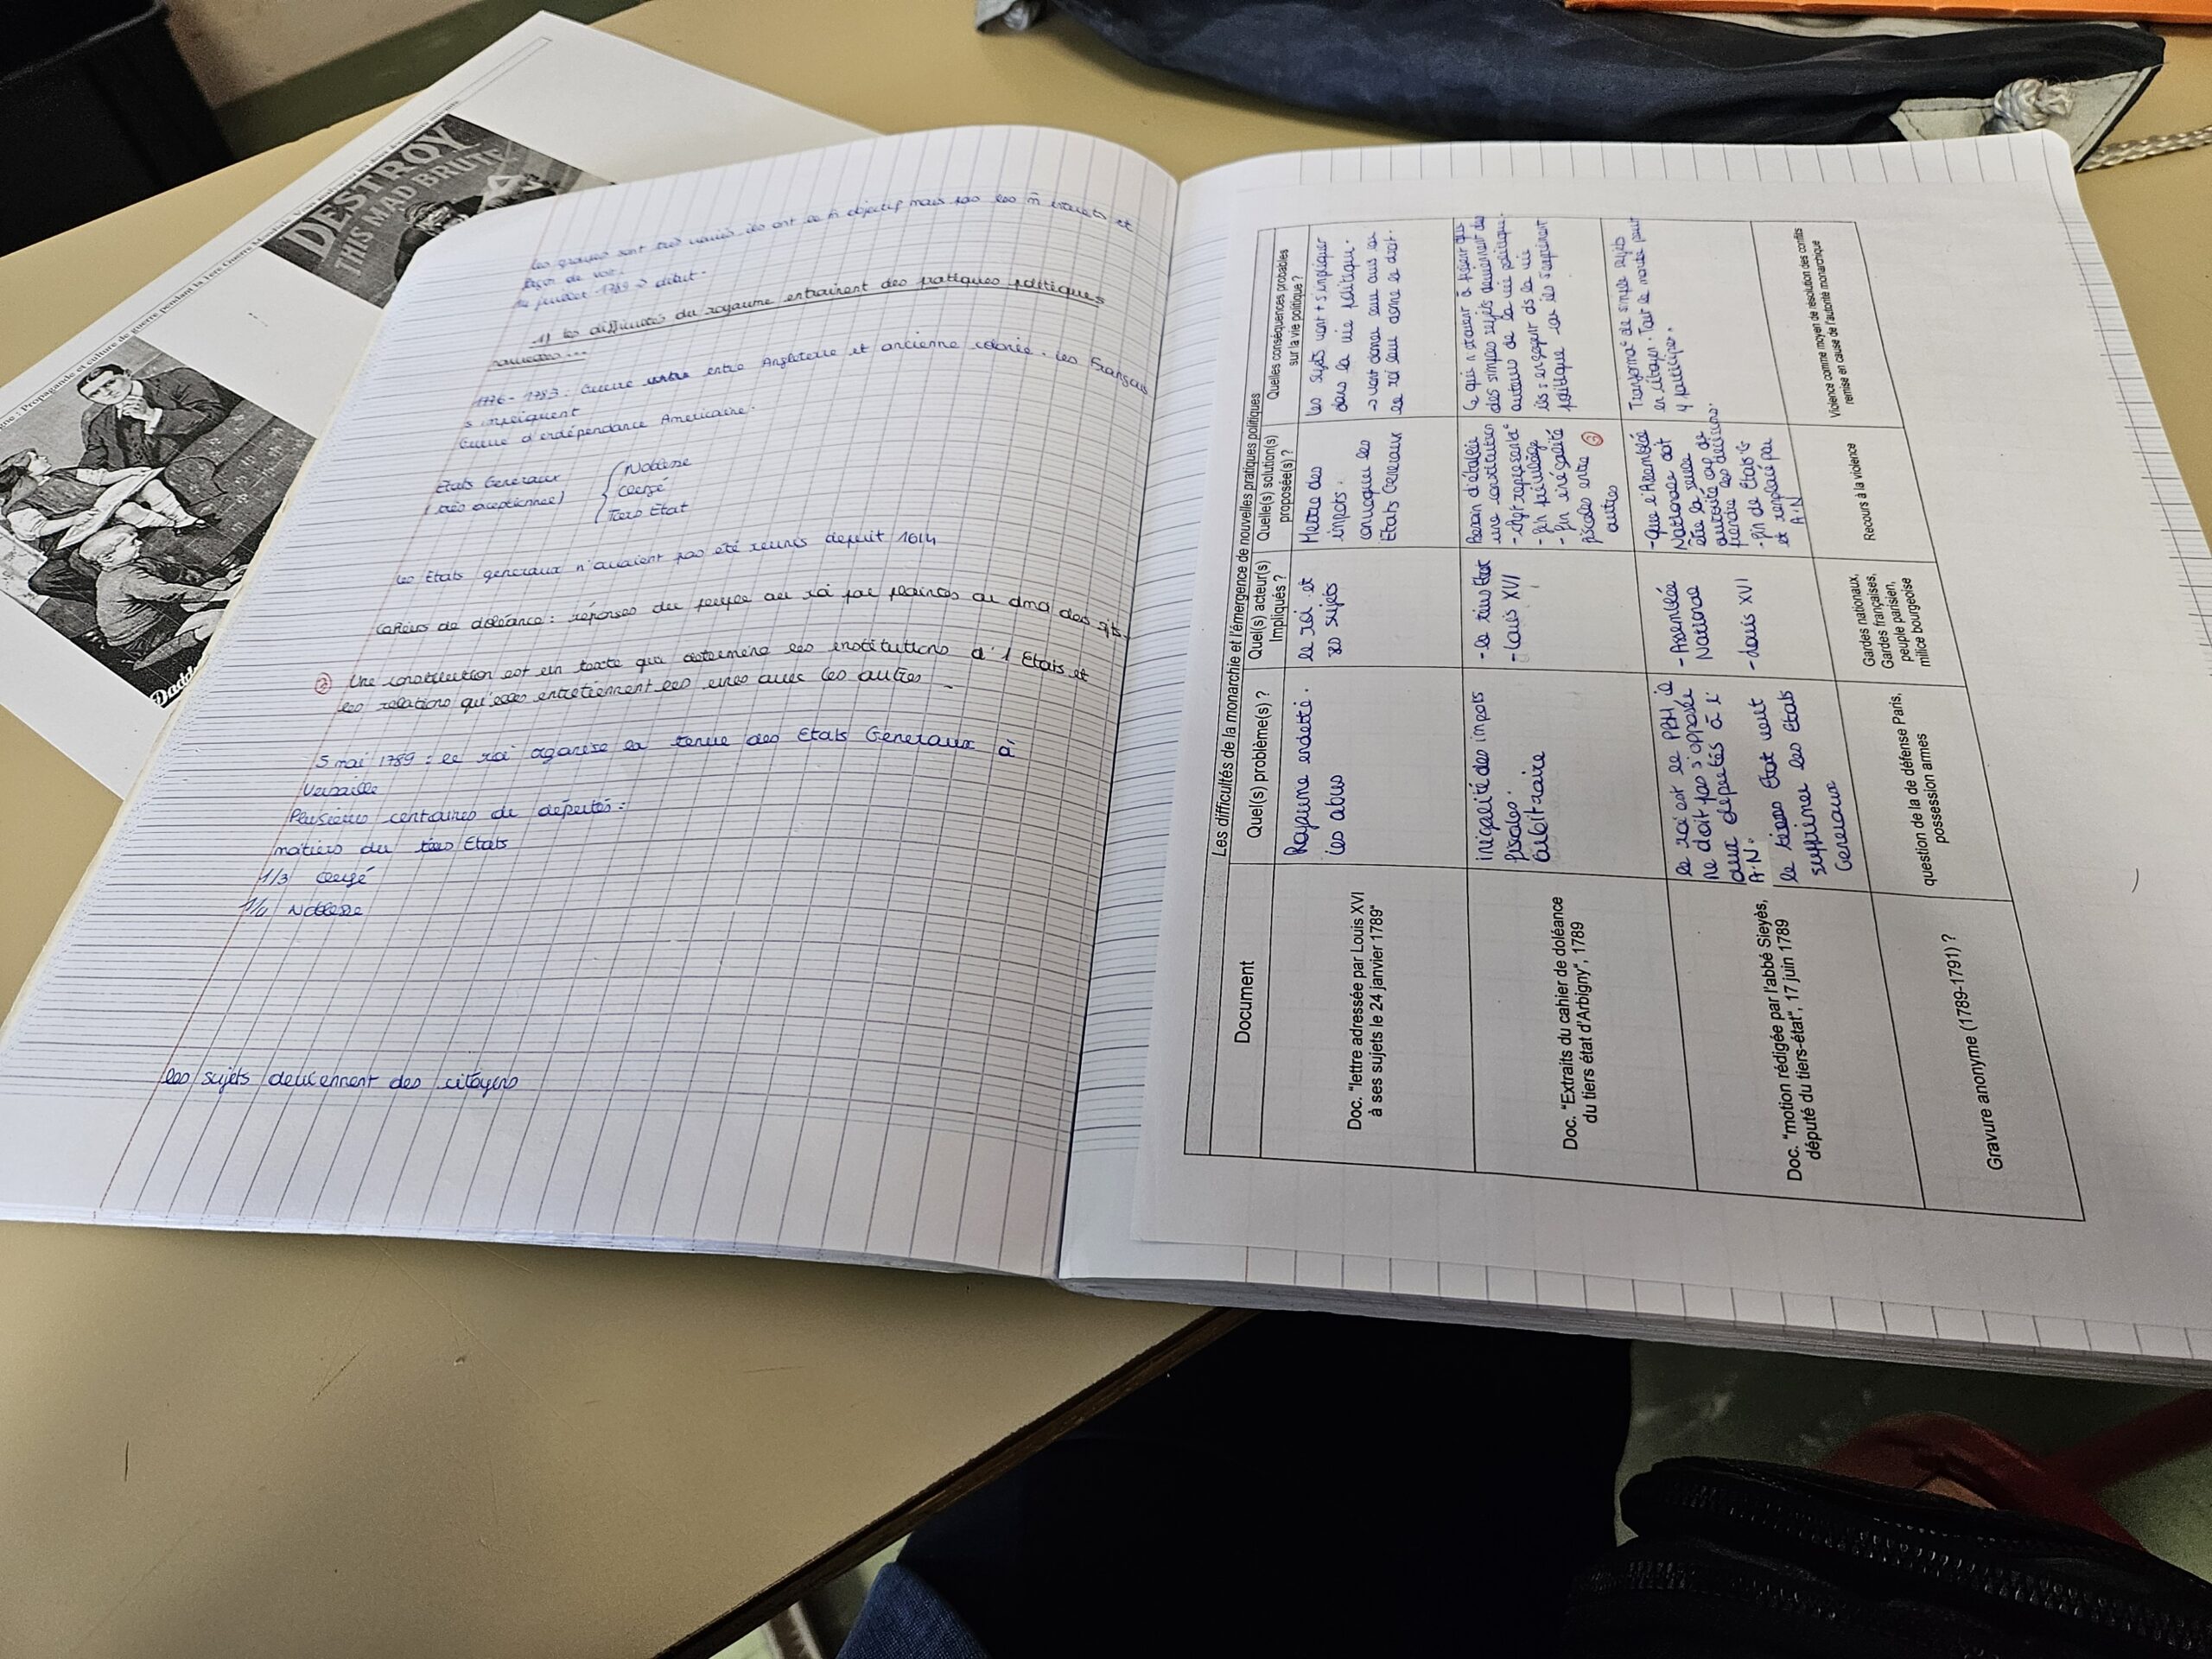 DESTROY
THIS MAD BRUTE
: Propagande et culture de guerre pendant la 1ère Guerre Mondiale. Vous analyserez les deux documents suivants
Les groupes sont très variés, ils ont le m̂ objectif mais pas les m̂ et
façon de voir.
juillet 1789 → début.
1) Les difficultés du royaume entrainent des pratiques politiques
nouvelles...
1776 - 1783 : Guerre entre Angleterre et ancienne colonie. Les Français
s'impliquent
Guerre d'indépendance Américaine.
Etats Generaux
(très exceptionnel)
Noblesse
Clergé
Tiers Etat
Les Etats generaux n'avaient pas été réunis depuis 1614
Cahiers de doléance : réponses du peuple au roi par plaintes ou dmd des sjts.
② Une constitution est un texte qui détermine les institutions d'1 Etats et
les relations qu'elles entretiennent les unes avec les autres
5 mai 1789 : le roi organise la tenue des Etats Generaux à
Versaille
Plusieurs centaines de députés :
moitiers du tiers Etats
1/3 Clergé
1/4 Noblesse
les sujets deviennent des citoyens
Les difficultés de la monarchie et l'émergence de nouvelles pratiques politiques
Document
Quel(s) problème(s) ?
Quel(s) acteur(s)
Impliqués ?
Quelle(s) solution(s)
proposée(s) ?
Quelles conséquences probables
sur la vie politique ?
Doc. "lettre adressée par Louis XVI
à ses sujets le 24 janvier 1789"
Royaume endetté.
Les abus
le roi et
ses sujets
Mettre des
impots.
convoquer les
Etats Generaux
Les sujets vont + s'impliquer
dans la vie politique.
→ vont donner leur avis car
le roi leur donne le droit.
Doc. "Extraits du cahier de doléance
du tiers état d'Arbigny", 1789
inégalité des impots
fiscales.
arbitraire
- le tiers Etat
- Louis XVI
Besoin d'établir
une constitution
- chgt représentat°
- fin privilège
- fin inégalité
fiscales entre ②
autres
des simples sujets deviennent des
acteurs de la vie politique.
ils s'engagent ds la vie
politique car ils s'expriment
Doc. "motion rédigée par l'abbé Sieyès,
député du tiers-état", 17 juin 1789
le roi est le PBM il
ne doit pas s'opposer
aux députés à l'
A.N.
le tiers Etat veut
supprimer les Etats
Generaux
- Assemblée
Nationale
- Louis XVI
- Que l'Assemblée
Nationale doit
être la seule
autorité cap de
prendre les décisions.
- fin de Etats G
et remplacé par
A.N
Transformat° de simple sujets
en citoyen. Tout le monde peut
y participer.
Gravure anonyme (1789-1791) ?
question de la défense Paris,
possession armes
Gardes nationaux,
Gardes françaises,
peuple parisien,
milice bourgeoise
Recours à la violence
Violence comme moyen de résolution des conflits
remise en cause de l'autorité monarchique